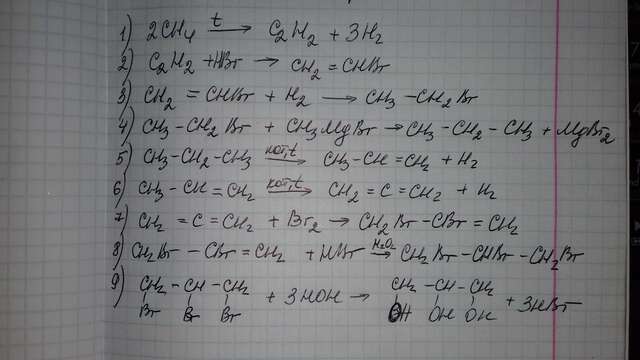 1) 2CH4 t→ C2H2 + 3H2
2) C2H2 + HBr → CH2 = CHBr
3) CH2 = CHBr + H2 → CH3 – CH2Br
4) CH3 – CH2Br + CH3MgBr → CH3 – CH2 – CH3 + MgBr2
5) CH3 – CH2 – CH3 кат, t→ CH3 – CH = CH2 + H2
6) CH3 – CH = CH2 кат, t→ CH2 = C = CH2 + H2
7) CH2 = C = CH2 + Br2 → CH2Br – CBr = CH2
8) CH2Br – CBr = CH2 + HBr H2O2→ CH2Br – CHBr – CH2Br
9) CH2 – CH – CH2 + 3HOH → CH2 – CH – CH2 + 3HBr
Br Br Br OH OH OH